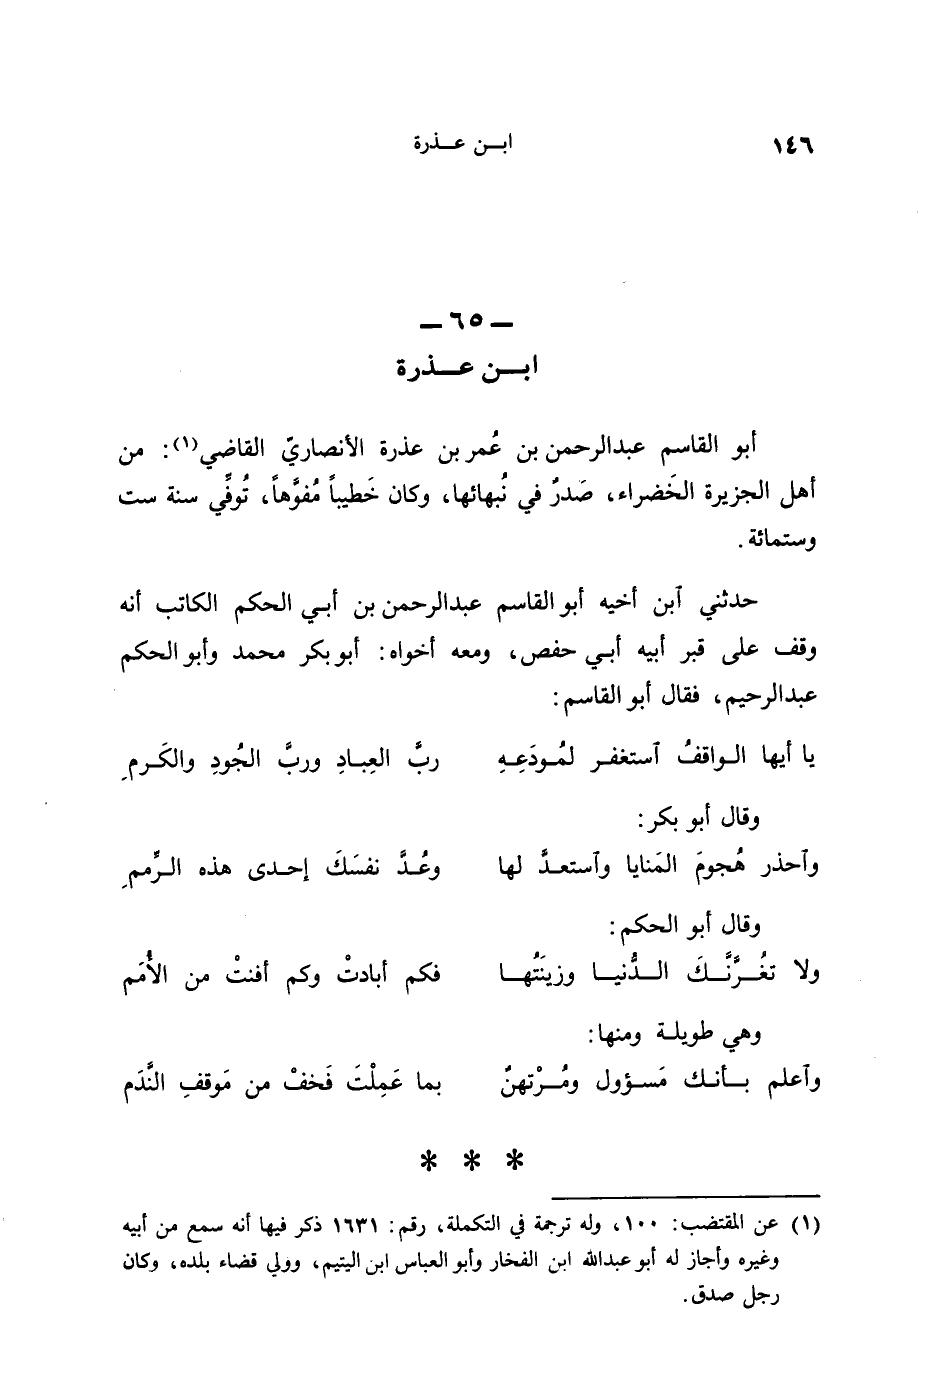 ١٤٦
ابـن عـذرة
ـ ٦٥ ـ
ابـن عـذرة
أبو القاسم عبدالرحمن بن عُمر بن عذرة الأنصاريّ القاضي(١): من
أهل الجزيرة الخَضراء، صَدرٌ في نُبهائها، وكان خَطيباً مُفوَّهاً، تُوفِّي سنة ست
وستمائة.
حدثني ٱبن أخيه أبو القاسم عبدالرحمن بن أبـي الحكم الكاتب أنه
وقف على قبر أبيه أبـي حفص، ومعه أخواه: أبو بكر محمد وأبو الحكم
عبدالرحيم، فقال أبو القاسم:
يا أيها الـواقفُ ٱستغفـر لمُـودَعِـهِ ربَّ العِبـادِ وربَّ الجُودِ والكَـرمِ
وقال أبو بكر:
وٱحذر هُجومَ المَنايا وٱستعـدَّ لها وعُـدَّ نفسَكَ إحـدى هذه الـرِّممِ
وقال أبو الحكم:
ولا تغُـرَّنَّـكَ الـدُّنيـا وزينَتُهـا فكم أبادتْ وكم أفنتْ من الأُمَم
وهي طويلـة ومنها:
وٱعلم بـأنـك مَسـؤول ومُـرْتهنٌ بما عَمِلْتَ فَخفْ من مَوقفِ النَّدَم
* * *
(١) عن المقتضب: ١٠٠، وله ترجمة في التكملة، رقم: ١٦٣١ ذكر فيها أنه سمع من أبيه
وغيره وأجاز له أبو عبدالله ابن الفخار وأبو العباس ابن اليتيم، وولي قضاء بلده، وكان
رجل صدق.